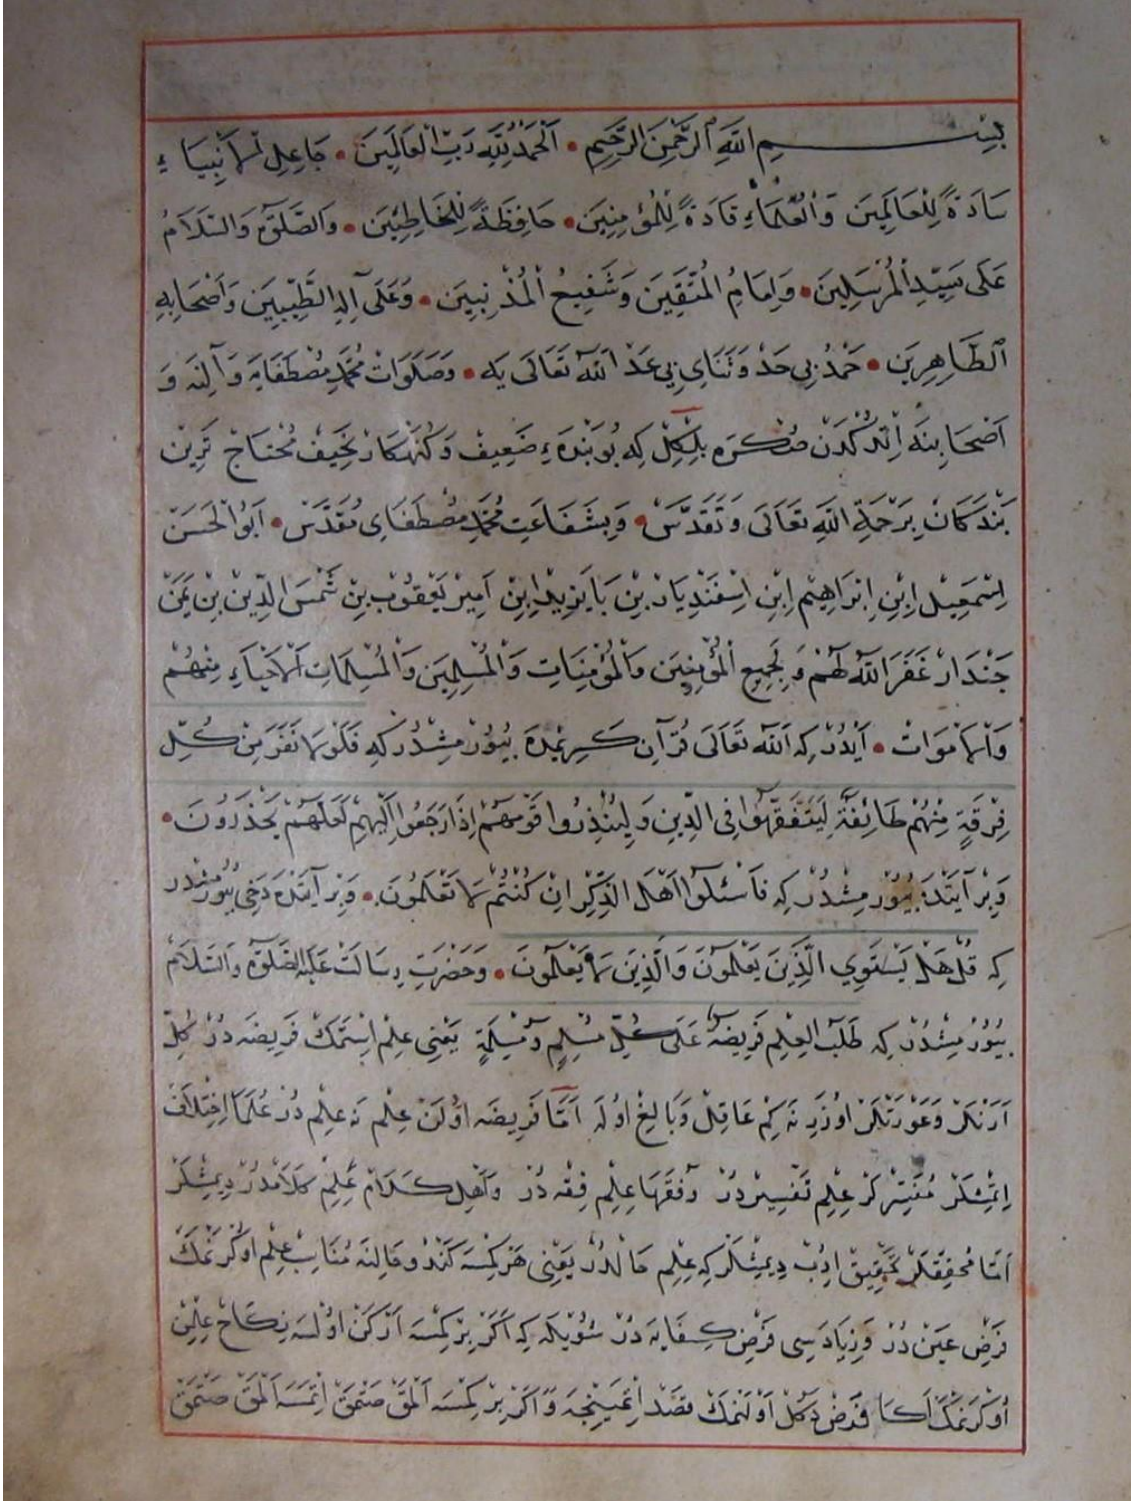 بِسْمِ اللّٰهِ الرَّحْمٰنِ الرَّحِيمِ • اَلْحَمْدُ لِلّٰهِ رَبِّ الْعَالَمِينَ • جَاعِلِ الْاَنْبِيَاءِ
سَادَةً لِلْعَالَمِينَ وَالْعُلَمَاءِ قَادَةً لِلْمُؤْمِنِينَ • حَافِظَةً لِلْخَاطِئِينَ • وَالصَّلٰوةُ وَالسَّلَامُ
عَلَى سَيِّدِ الْمُرْسَلِينَ • وَاِمَامِ الْمُتَّقِينَ وَشَفِيعُ الْمُذْنِبِينَ • وَعَلَى آلِهِ الطَّيِّبِينَ وَاَصْحَابِهِ
الطَّاهِرِينَ • حَمْدُ بِى حَدْ وَثَنَاىِ بِى عَدْ اَللّٰه تَعَالَى يَه • وَصَلَوَاتْ مُحَمَّدِ مُصْطَفَايَه وَآلِنَه وَ
اَصْحَابِنَه اِتْدُكْدَنْ صُكْرَه بِلْكِلْ كِه بُو بَنْدَهءِ ضَعِيفْ وَكُنَهْكَارْ نَحِيفْ مُحْتَاجْ تَرِينْ
بَنْدَكَانْ بِرَحْمَةِ اللّٰهِ تَعَالَى وَتَقَدَّسْ • وَبِشَفَاعَتِ مُحَمَّدِ مُصْطَفَاىِ مُقَدَّسْ • اَبُو الْحَسَنْ
اِسْمَعِيلْ اِبْنِ اِبْرَاهِيمْ اِبْنِ اِسْفَنْدِيَارْ بِنْ بَايَزِيدْ اِبْنِ اَمِيرْ يَعْقُوبْ بِنْ شَمْسِ الدِّينْ بِنْ يَمَنْ
جَنْدَارْ غَفَرَ اللّٰهُ لَهُمْ وَلِجَمِيعِ الْمُؤْمِنِينَ وَالْمُؤْمِنَاتِ وَالْمُسْلِمِينَ وَالْمُسْلِمَاتِ الْاَحْيَاءِ مِنْهُمْ
وَالْاَمْوَاتْ • اَيْدُرْ كِه اَللّٰه تَعَالَى قُرْآنِ كَرِيمْدَه بُيُورْمِشْدُرْ كِه فَلَوْلَا نَفَرَ مِنْ كُلِّ
فِرْقَةٍ مِنْهُمْ طَائِفَةٌ لِيَتَفَقَّهُوا فِى الدِّينِ وَلِيُنْذِرُوا قَوْمَهُمْ اِذَا رَجَعُوا اِلَيْهِمْ لَعَلَّهُمْ يَحْذَرُونَ •
وَبِرْ آيَتْدَه بُيُورْمِشْدُرْ كِه فَاسْئَلُوا اَهْلَ الذِّكْرِ اِنْ كُنْتُمْ لَا تَعْلَمُونَ • وَبِرْ آيَتْدَه دَخِى بُيُورْمِشْدُر
كِه قُلْ هَلْ يَسْتَوِي الَّذِينَ يَعْلَمُونَ وَالَّذِينَ لَا يَعْلَمُونَ • وَحَضْرَتِ رِسَالَتْ عَلَيْهِ الصَّلٰوةُ وَالسَّلَامْ
بُيُورْمِشْدُرْ كِه طَلَبُ الْعِلْمِ فَرِيضَةٌ عَلَى كُلِّ مُسْلِمٍ وَمُسْلِمَةٍ يَعْنِى عِلْمْ اِسْتَمَكْ فَرِيضَه دُرْ كُلِّ
اَرَنْلَرْ وَعَوْرَتْلَرْ اُوزَرِنَه كِمْ عَاقِلْ وَبَالِغْ اُولَه اَمَّا فَرِيضَه اُولَنْ عِلْمْ نَه عِلْمْ دُرْ عُلَمَا اِخْتِلَافْ
اِتْمِشْلَرْ مُفَسِّرْلَرْ عِلْمِ تَفْسِيرْ دُرْ وَفُقَهَا عِلْمِ فِقْه دُرْ وَاَهْلِ كَلَامْ عِلْمِ كَلَامْدُرْ دِيمِشْلَرْ
اَمَّا مُحَقِّقْلَرْ تَحْقِيقْ اِدُبْ دِيمِشْلَرْ كِه عِلْمِ حَالْدُرْ يَعْنِى هَرْ كِمْسَه كَنْدُو حَالِنَه مُنَاسِبْ عِلْمْ اُوكْرَنْمَكْ
فَرْضِ عَيْنْ دُرْ وَزِيَادَسِى فَرْضِ كِفَايَه دُرْ شُويْلَه كِه اَكَرْ بِرْ كِمْسَه اَرْكَنْ اُولْسَه نِكَاحْ عِلْمِنْ
اُوكْرَنْمَكْ اَكَا فَرْضْ دَكُلْ اَوْلَنْمَكْ قَصْدْ اِتْمَيِنْجَه وَاَكَرْ بِرْ كِمْسَه اَلْمَقْ صَتْمَقْ اِتْمَسَه اَلْمَقْ صَتْمَقْ